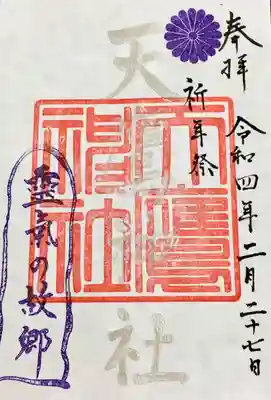 奉拝 令和四年二月二十七日
祈年祭
天鷹神社
天鷹神社
霊氣の故郷